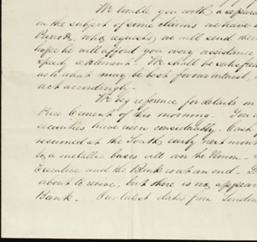 We trouble you with a separate
on the subject of some claims we have
who requests, we will send them
hope he will afford you every assistance
speedy settlement. We shall be satisfied
as to what may be best for our interest,
act accordingly.
We beg reference for details on
Price Current of this morning. You
securities have risen considerably. Cash
resumed at the South early next month
by a metallic basis will
Executive and the Bank is at an end.
about to issue, but there is no appearance
Bank. Our latest dates from London